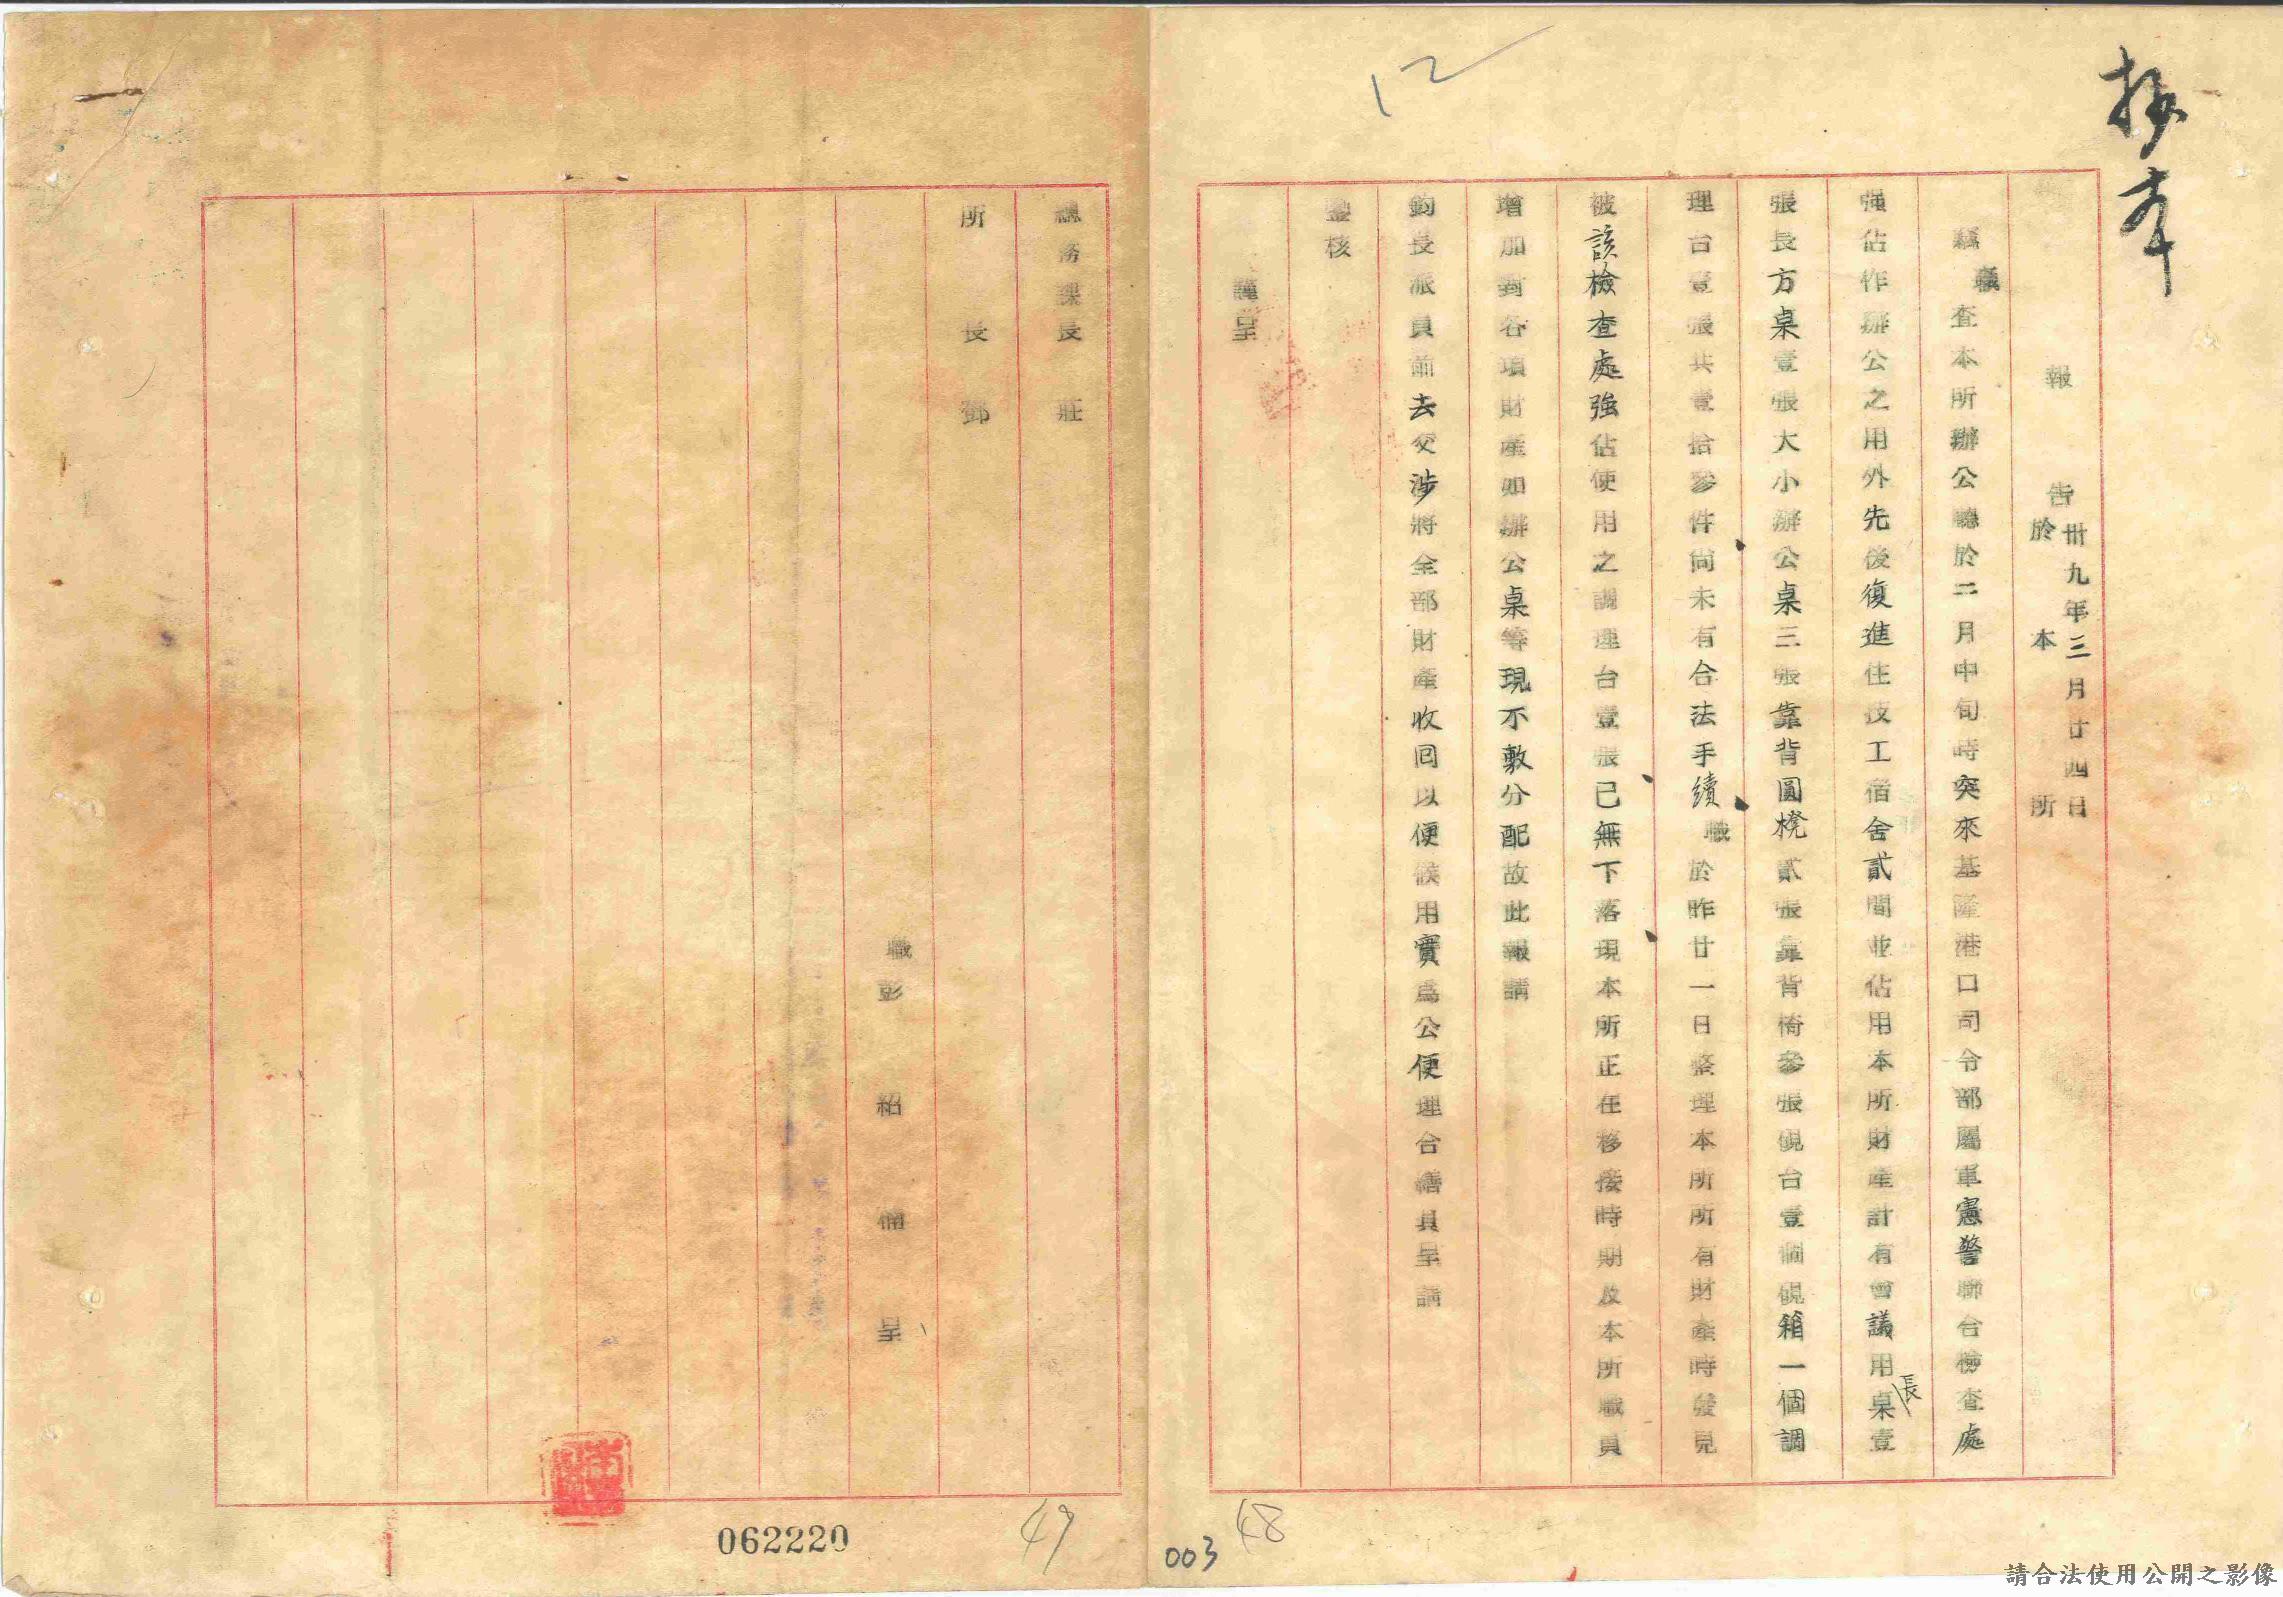 抄本
報告 卅九年三月廿四日
於本所
竊職查本所辦公廳於二月中旬時突來基隆港口司令部屬軍憲警聯合檢查處
強佔作辦公之用外先後復進住技工宿舍貳間並佔用本所財產計有會議用長桌壹
張長方桌壹張大小辦公桌三張靠背圓櫈貳張靠背椅參張硯台壹個硯箱一個調
理台壹張共壹拾參件尚未有合法手續職於昨廿一日整理本所所有財產時發見
被該檢查處強佔使用之調理台壹張已無下落現本所正在移接時期及本所職員
增加對各項財產如辦公桌等現不敷分配故此報請
鈞長派員前去交涉將全部財產收回以便候用實為公便理合繕具呈請
鑒核
謹呈
總務課長 莊
所長 鄧
職 彭紹 呈
12
48
003
49
062220
請合法使用公開之影像